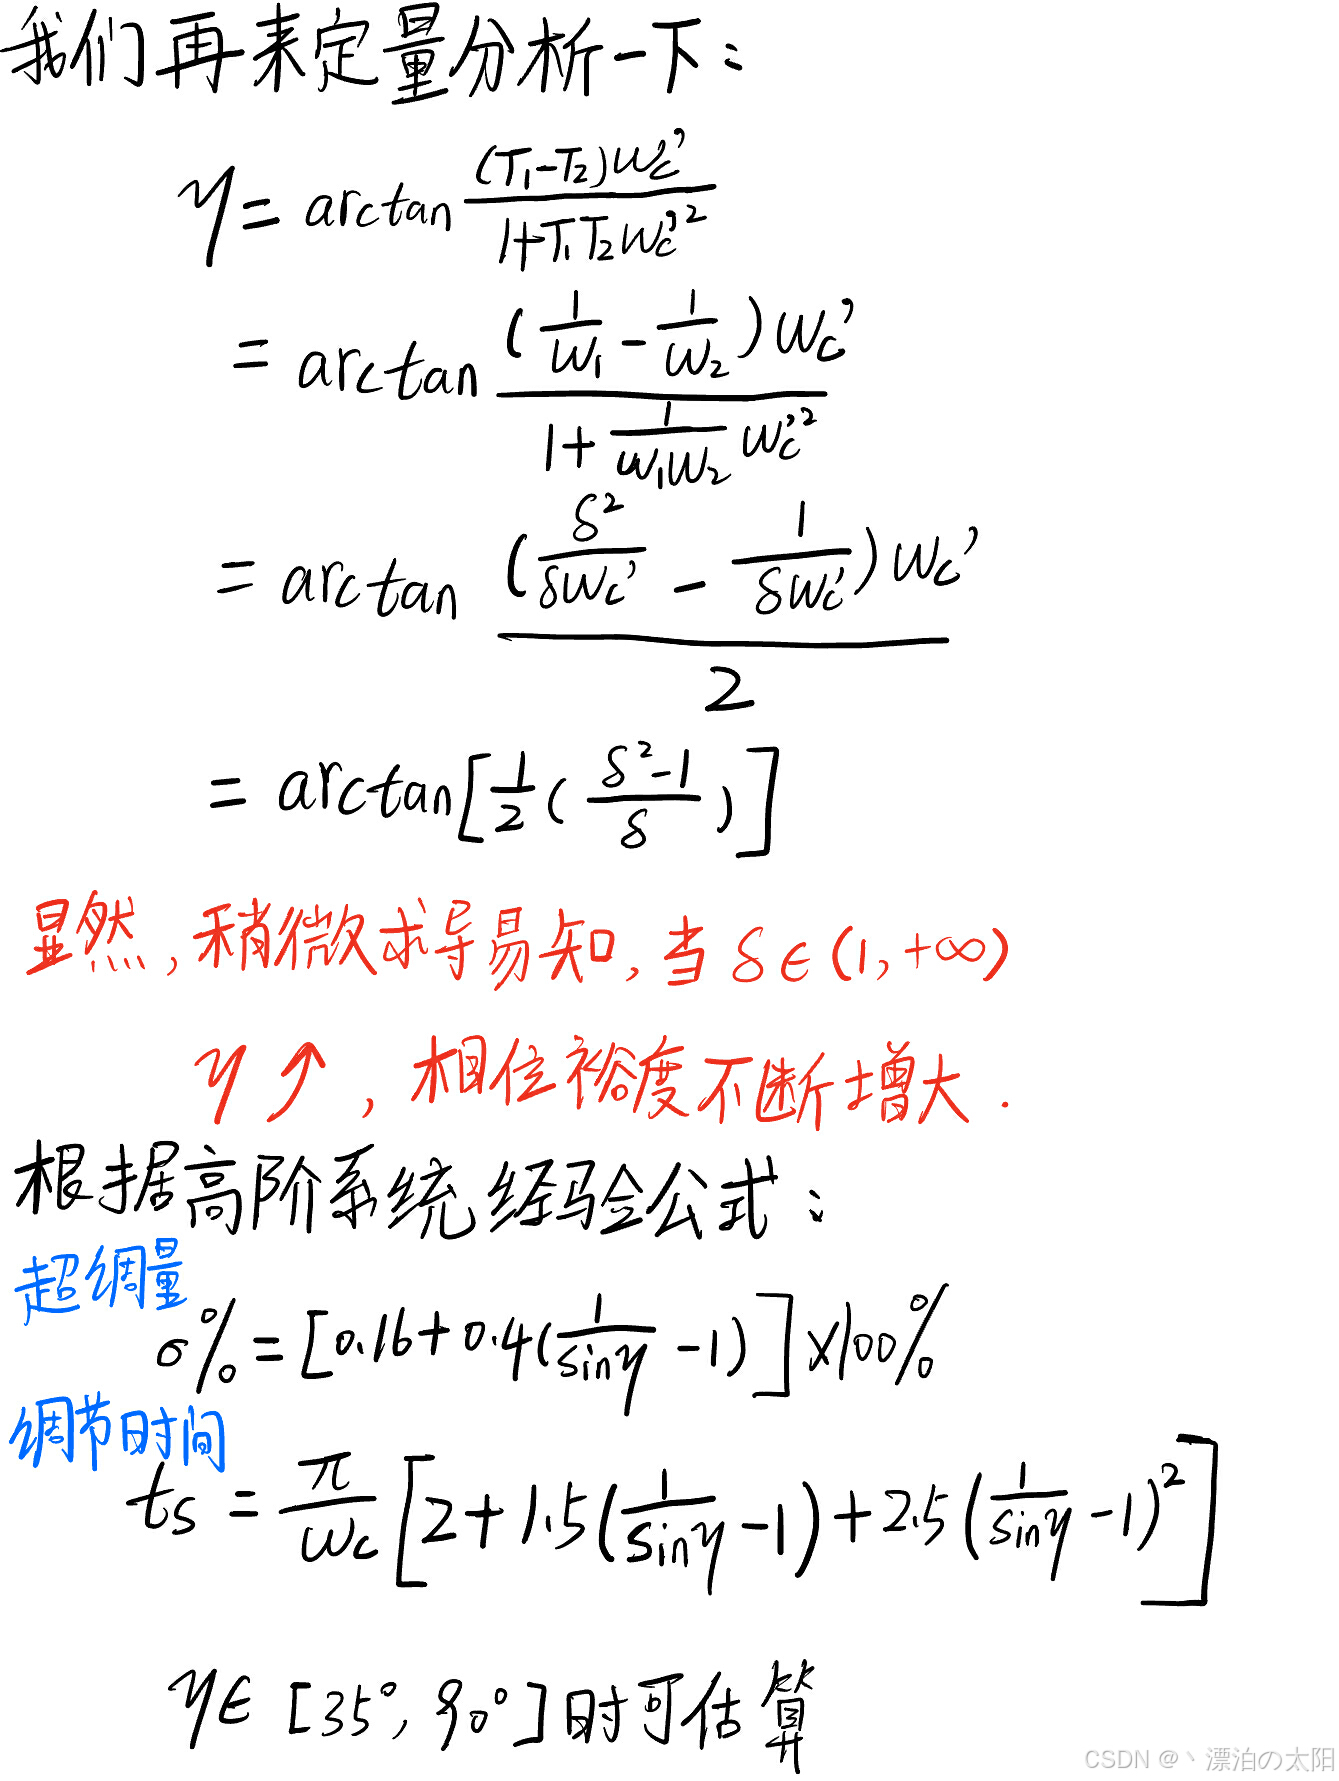 我们再来定量分析一下：
γ = arctan (T₁-T₂)ωc' / 1+T₁T₂ωc'²
= arctan (1/ω₁ - 1/ω₂)ωc' / 1+ 1/ω₁ω₂ ωc'²
= arctan (δ²/δωc' - 1/δωc')ωc' / 2
= arctan[1/2(δ²-1/δ)]
显然,稍微求导易知,当 δ∈(1,+∞)
γ↑,相位裕度不断增大.
根据高阶系统经验公式：
超绸量
σ% = [0.16+0.4(1/sinγ -1)]×100%
调节时间
ts = π/ωc [2+1.5(1/sinγ -1)+2.5(1/sinγ -1)²]
γ∈[35°,90°]时可估算
CSDN @丶漂泊の太阳